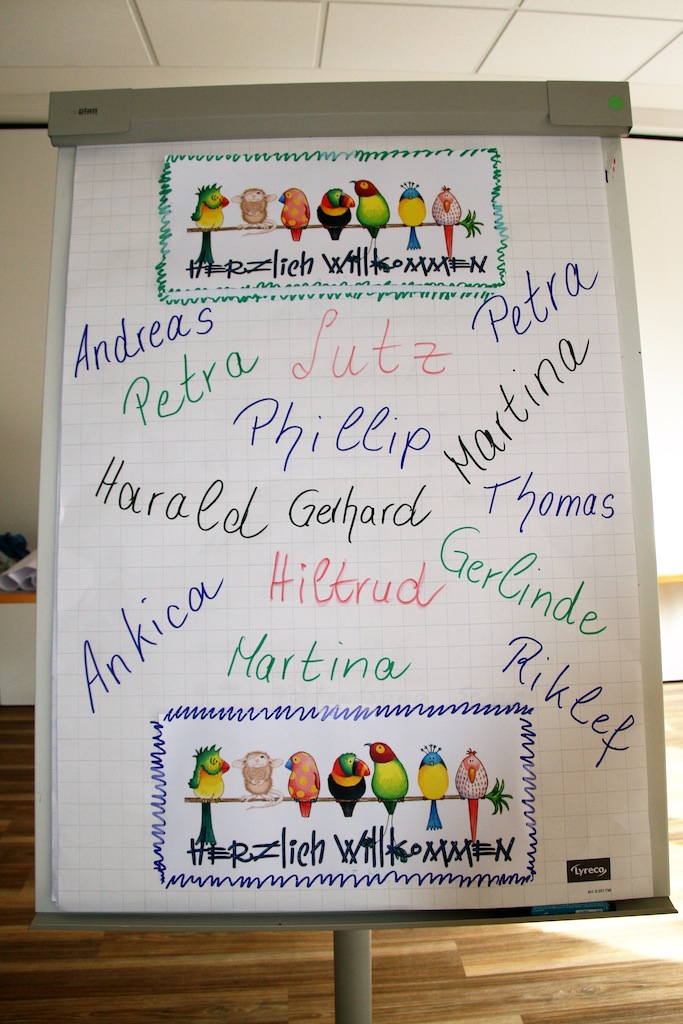 plan
HERZlich Willkommen
Andreas
Petra
Lutz
Petra
Phillip
Martina
Harald
Gerhard
Thomas
Hiltrud
Gerlinde
Ankica
Martina
Riklef
HERZlich Willkommen
Lyreco